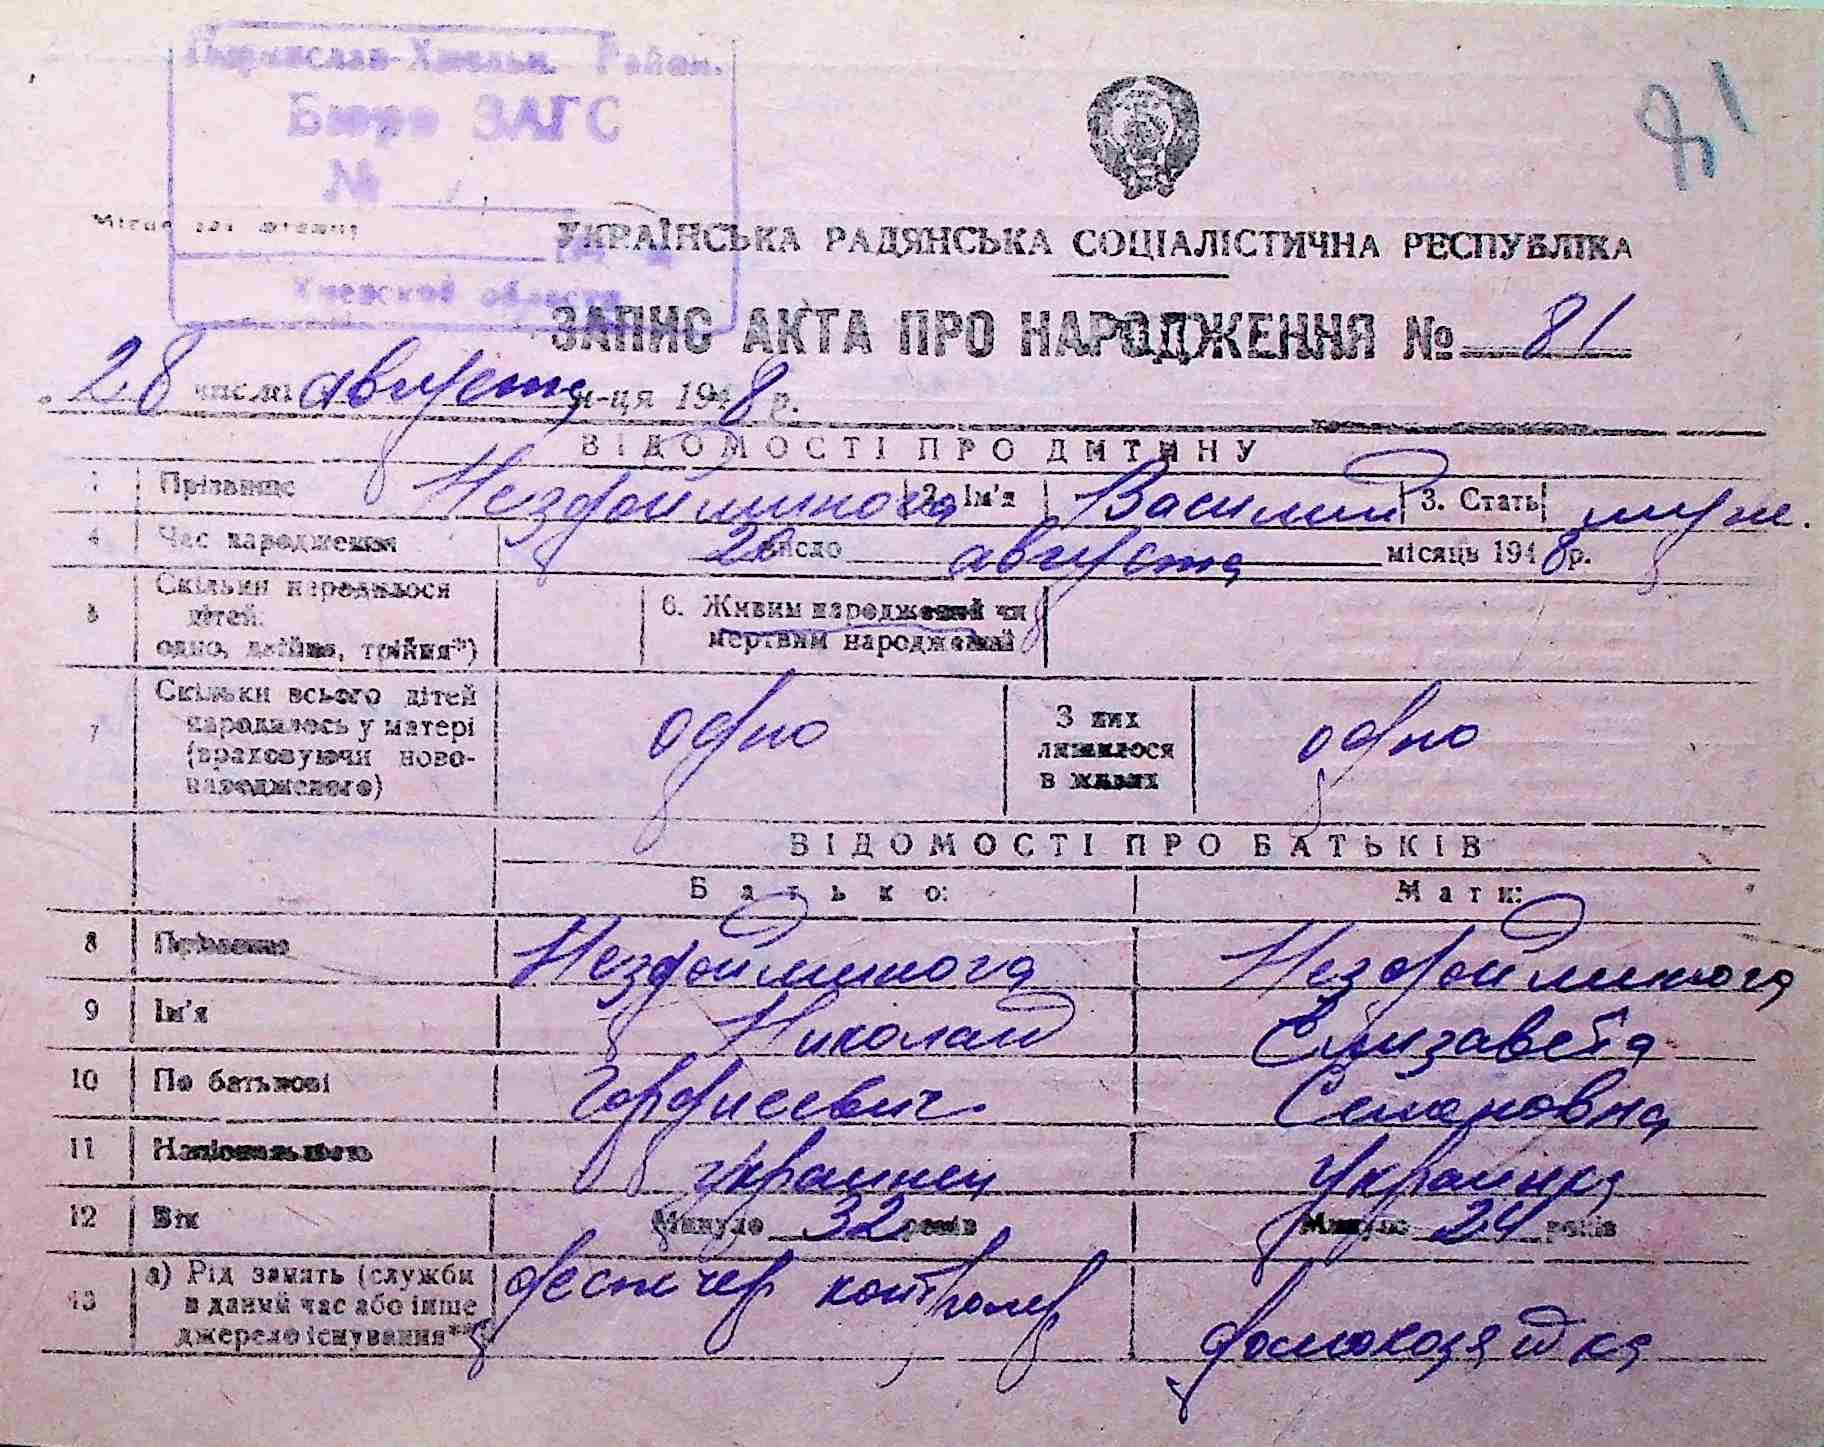 81
Переяслав-Хмельн. Район.
Бюро ЗАГС
№
Місце для штампу
Киевской области
УКРАЇНСЬКА РАДЯНСЬКА СОЦІАЛІСТИЧНА РЕСПУБЛІКА
ЗАПИС АКТА ПРО НАРОДЖЕННЯ № 81
28 числа августа м-ця 1948 р.
ВІДОМОСТІ ПРО ДИТИНУ
1 Прізвище Нездойминога 2. Ім'я Василий 3. Стать муж.
4 Час народження 20 число августа місяць 1948 р.
5 Скільки народилося дітей: одно, двійня, трійня*) 6. Живим народжений чи мертвим народжений
7 Скільки всього дітей народилось у матері (враховуючи новонародженого) одно З них лишилося в живих одно
ВІДОМОСТІ ПРО БАТЬКІВ
Батько: Мати:
8 Прізвище Нездойминога Нездойминога
9 Ім'я Николай Елизавета
10 По батькові Гордиевич. Семеновна
11 Національність украинец украинка
12 Вік Минуло 32 років Минуло 24 років
13 а) Рід занять (служби в даний час або інше джерело існування**) контролер домохозяйка